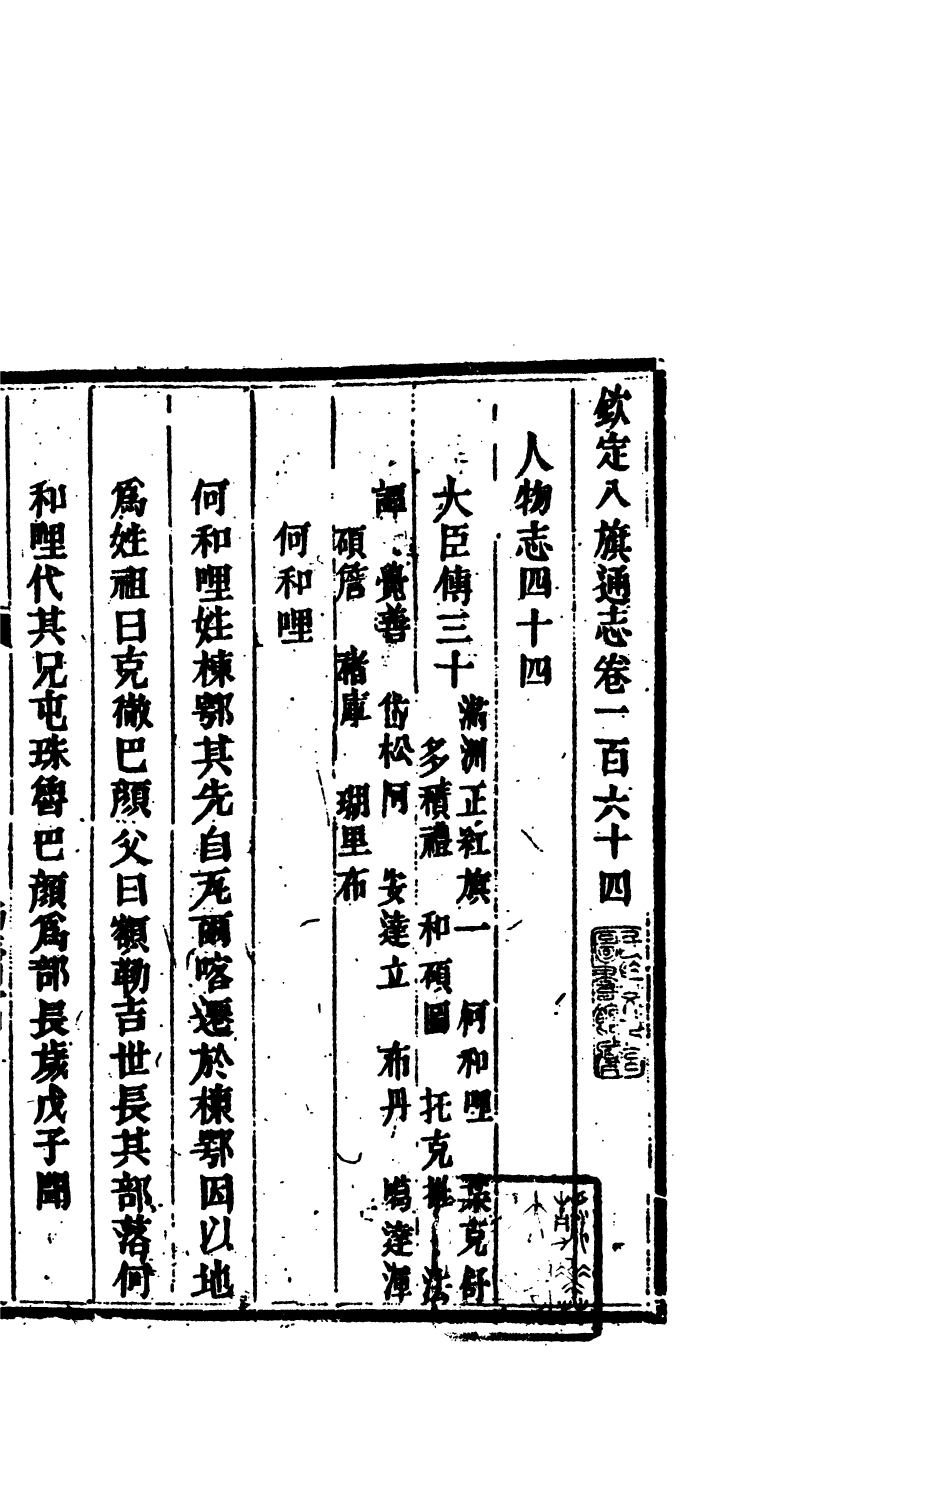 欽定八旗通志卷一百六十四
人物志四十四
大臣傳三十
滿洲正紅旗一 何和哩 棻克舒
多積禮 和碩圖 托克推 法
譚 覺善 岱松阿 安達立 布丹 噶達渾
碩詹 褚庫 瑚里布
何和哩
何和哩姓棟鄂其先自瓦爾喀遷於棟鄂因以地
爲姓祖曰克徹巴顔父曰額勒吉世長其部落何
和哩代其兄屯珠魯巴顔爲部長歲戊子聞